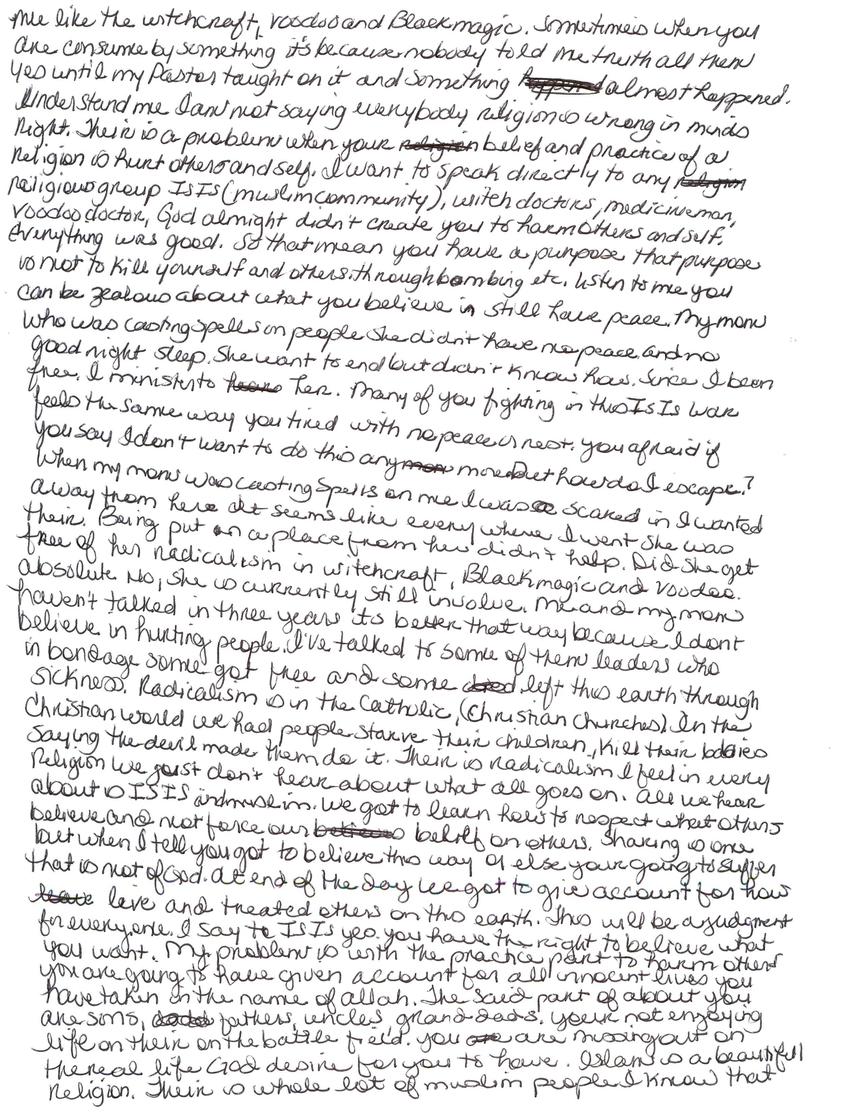 me like the witchcraft, voodoo and Blackmagic. Sometimes when you
are consume by something it's because nobody told me truth all them
yes until my Pastor taught on it and something almost happened.
Understand me I am not saying everybody religion is wrong in minds
right. Their is a problem when your belief and practice of a
religion is hurt others and self. I want to speak directly to any
religious group ISIS (muslim community), witch doctors, medicineman,
voodoo doctor, God almight didn't create you to harm others and self.
Everything was good. So that mean you have a purpose that purpose
is not to kill yourself and others through bombing etc. listen to me you
can be zealous about what you believe in still have peace. My mom
who was casting spells on people she didn't have no peace and no
good night sleep. She want to end but didn't know how. Since I been
free. I minister to her. Many of you fighting in this ISIS war
feels the same way you tired with no peace or rest. You afraid if
you say I don't want to do this any more But how do I escape?
When my mom was casting spells on me I was scared in I wanted
away from here it seems like every where I went she was
their. Being put in a place from her didn't help. Did she get
free of her radicalism in witchcraft, Blackmagic and Voodoo.
absolute No, she is currently still involve. Me and my mom
haven't talked in three years its better that way because I dont
believe in hurting people. I've talked to some of them leaders who
in bondage some got free and some left this earth through
sickness. Radicalism is in the Catholic, (Christian Churches) In the
Christian world we had people starve their children, kill their babies
saying the devil made them do it. Their is radicalism I feel in every
Religion we just don't hear about what all goes on. All we hear
about is ISIS and muslim. We got to learn how to respect what others
believe and not force our belief on others. Sharing is one
but when I tell you got to believe this way or else your going to suffer
that is not of God. At end of the day we got to give account for how
live and treated others on this earth. This will be a judgment
for everyone. I say to ISIS yes you have the right to believe what
you want. My problem is with the practice part to harm others
you are going to have given account for all innocent lives you
have taken in the name of allah. The said part of about you
are sons, fathers, uncles, grand dads. your not enjoying
life on their on the battle field. you are missing out on
the real life God desire for you to have. Islam is a beautifull
religion. Their is whole lot of muslim people I know that